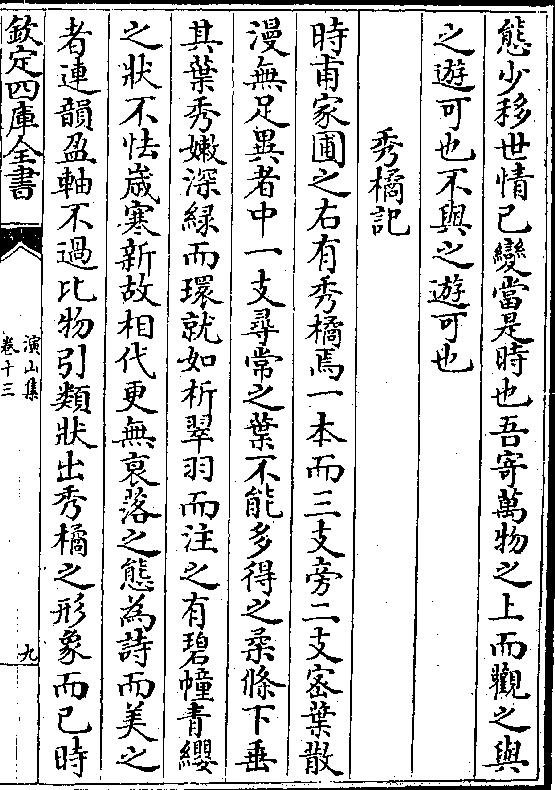 態少移世情已變當是時也吾寄萬物之上而觀之與
之遊可也不與之遊可也
秀橘記
時甫家圃之右有秀橘焉一本而三支旁二支宻葉散
漫無足異者中一支尋常之葉不能多得之柔條下垂
其葉秀嫩深緑而環就如析翠羽而注之有碧幢青纓
之狀不怯嵗寒新故相代更無衰落之態為詩而美之
者連韻盈軸不過比物引類狀出秀橘之形象而已時
欽定四庫全書
演山集
卷十三
九